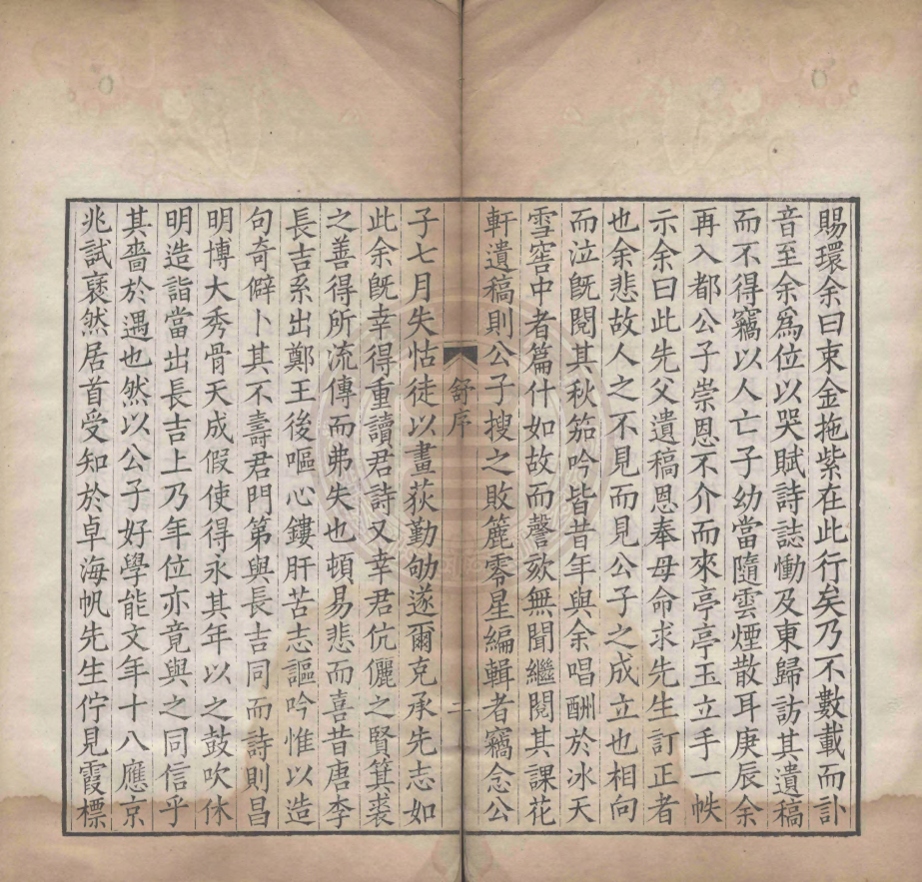 賜環余曰束金拖紫在此行矣乃不數載而訃
音至余爲位以哭賦詩誌慟及東歸訪其遺稿
而不得竊以人亡子幼當隨雲煙散耳庚辰余
再入都公子崇恩不介而來亭亭玉立手一帙
示余曰此先父遺稿恩奉母命求先生訂正者
也余悲故人之不見而見公子之成立也相向
而泣旣閱其秋笳吟皆昔年與余唱酬於冰天
雪窖中者篇什如故而謦欬無聞繼閱其課花
軒遺稿則公子搜之敗簏零星編輯者竊念公
舒序
二
子七月失怙徒以畫荻勤劬遂爾克承先志如
此余旣幸得重讀君詩又幸君伉儷之賢箕裘
之善得所流傳而弗失也頓易悲而喜昔唐李
長吉系出鄭王後嘔心鏤肝苦志謳吟惟以造
句奇僻卜其不壽君門第與長吉同而詩則昌
明博大秀骨天成假使得永其年以之鼓吹休
明造詣當出長吉上乃年位亦竟與之同信乎
其嗇於遇也然以公子好學能文年十八應京
兆試裦然居首受知於卓海帆先生佇見霞標